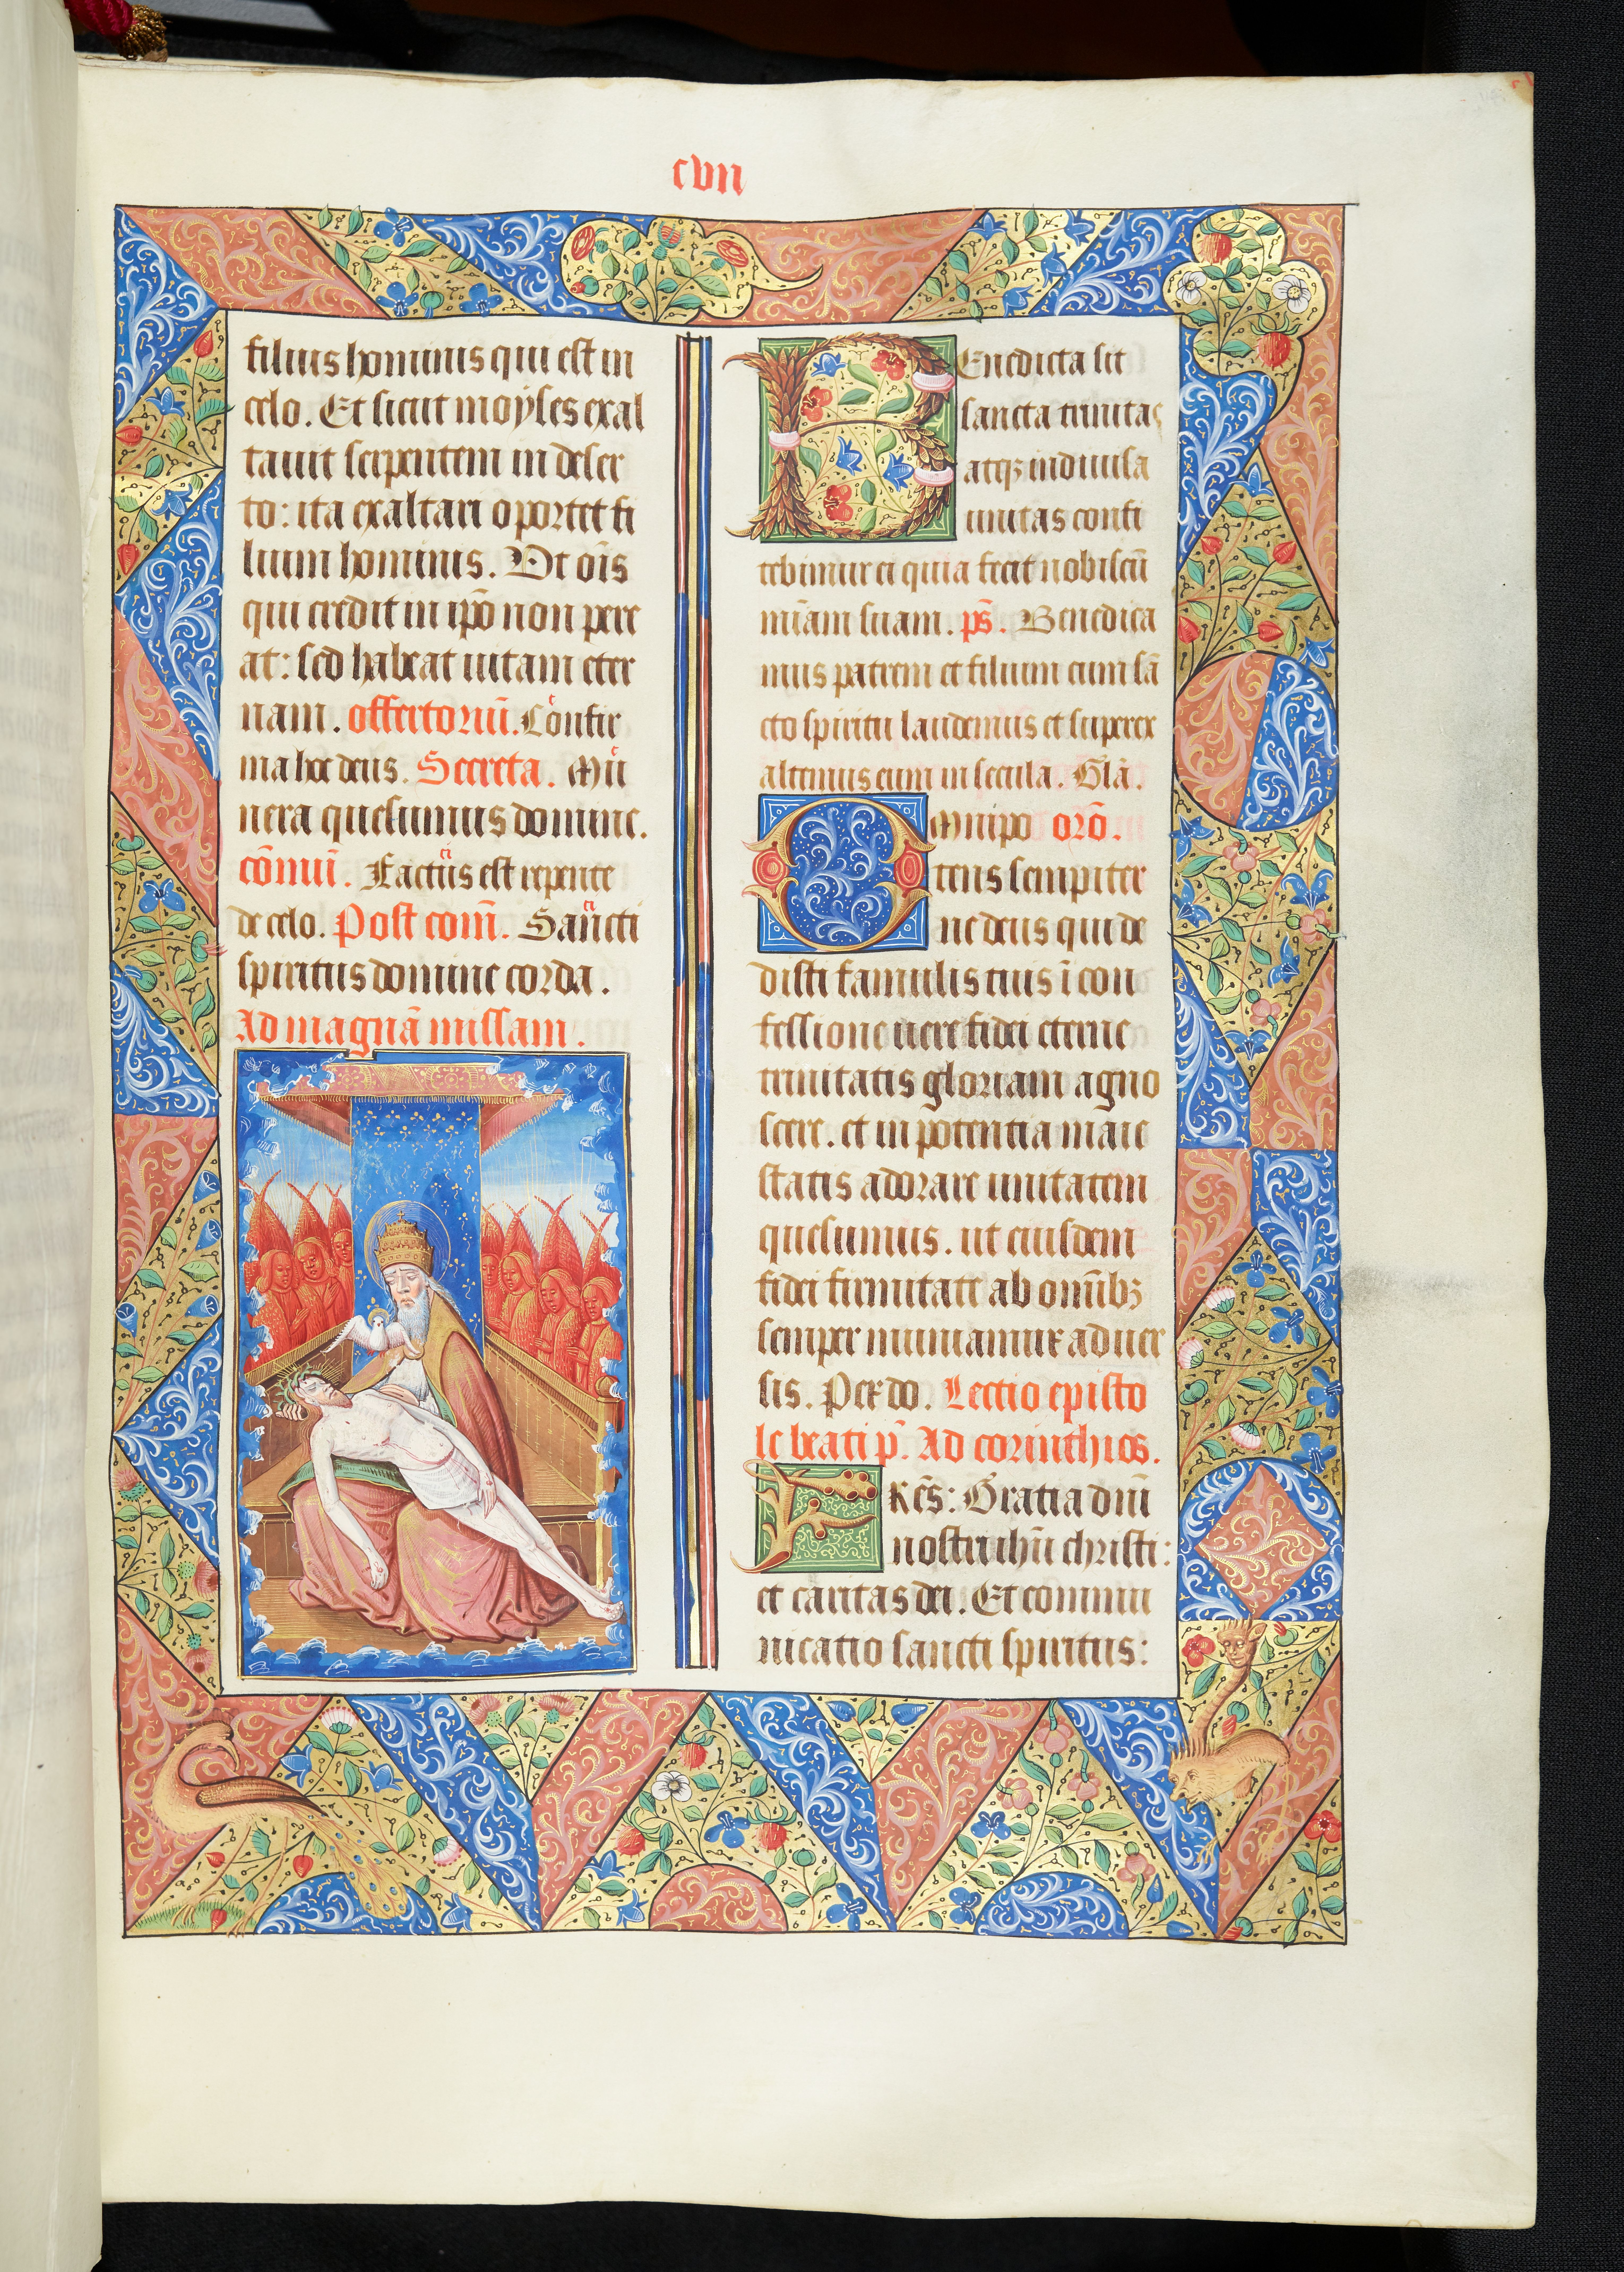 cvii
filius hominis qui est in
celo. Et sicut moyses exal
tauit serpentem in deser
to: ita exaltari oportet fi
lium hominis. Vt oīs
qui credit in ip̄o non pere
at: sed habeat uitam eter
nam. offertoriū. Confir
ma hoc deus. Secreta. Mu
nera quesumus domine.
cōmuī. Factus est repente
de celo. Post com̄. Sancti
spiritus domine corda.
Ad magnā missam.
Benedicta sit
sancta trinitas
atqꝫ indiuisa
unitas confi
tebimur ei quia fecit nobiscū
mīam suam. ps̄. Benedica
mus patrem et filium cum sā
cto spiritu laudemus et superex
altemus eum in secula. Glā.
Omnipo orō.
tens sempiter
ne deus qui de
disti famulis tuis ī con
fessione uere fidei eterne
trinitatis gloriam agno
scere. et in potentia maie
statis adorare unitatem
quesumus. ut eiusdem
fidei firmitate ab omībꝫ
semper muniamur aduer
sis. Per do. Lectio episto
le beati p̄. Ad corinthios.
FRēs: Gratia dn̄i
nostri ihū christi:
et caritas dei. Et commu
nicatio sancti spiritus: